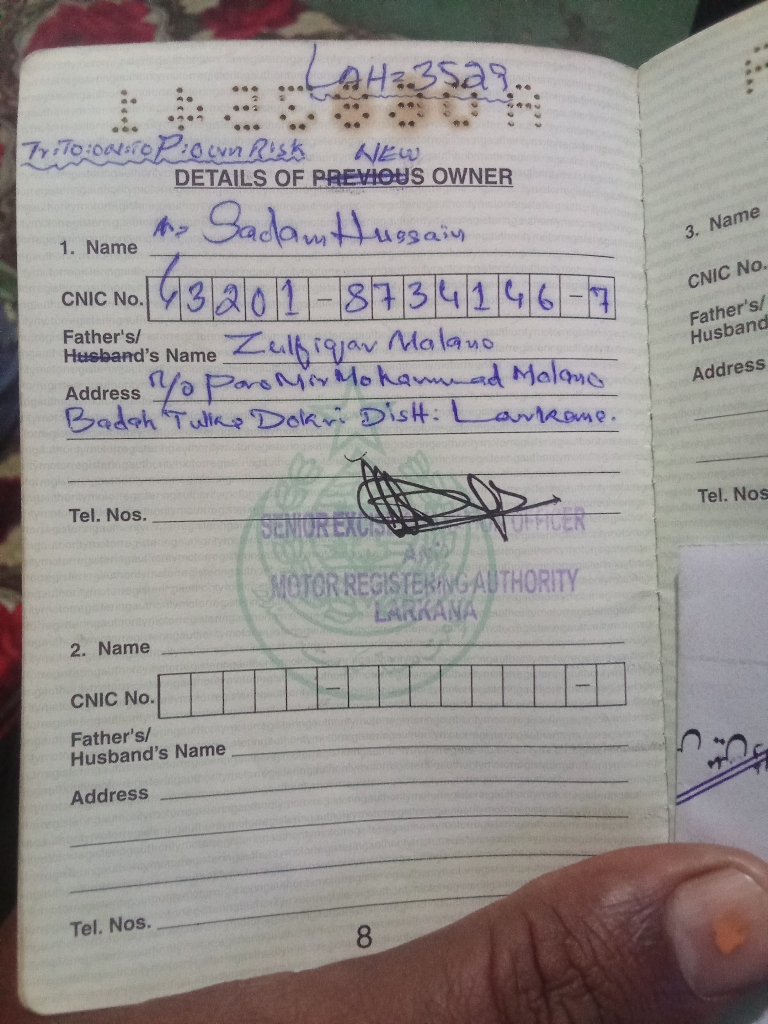 LAH=3529
Tr:To:
P:own Risk NEW
DETAILS OF PREVIOUS OWNER
1. Name Sadam Hussain
CNIC No. 43201-8734146-7
Father's/
Husband's Name Zulfiqar Malano
Address r/o Paro Mir Mohammad Malano
Badah Tulka Dokri Distt: Larkana.
Tel. Nos.
SENIOR EXCIS OFFICER
AND
MOTOR REGISTERING AUTHORITY
LARKANA
2. Name
CNIC No. - -
Father's/
Husband's Name
Address
Tel. Nos.
8
3. Name
CNIC No.
Father's/
Husband
Address
Tel. Nos